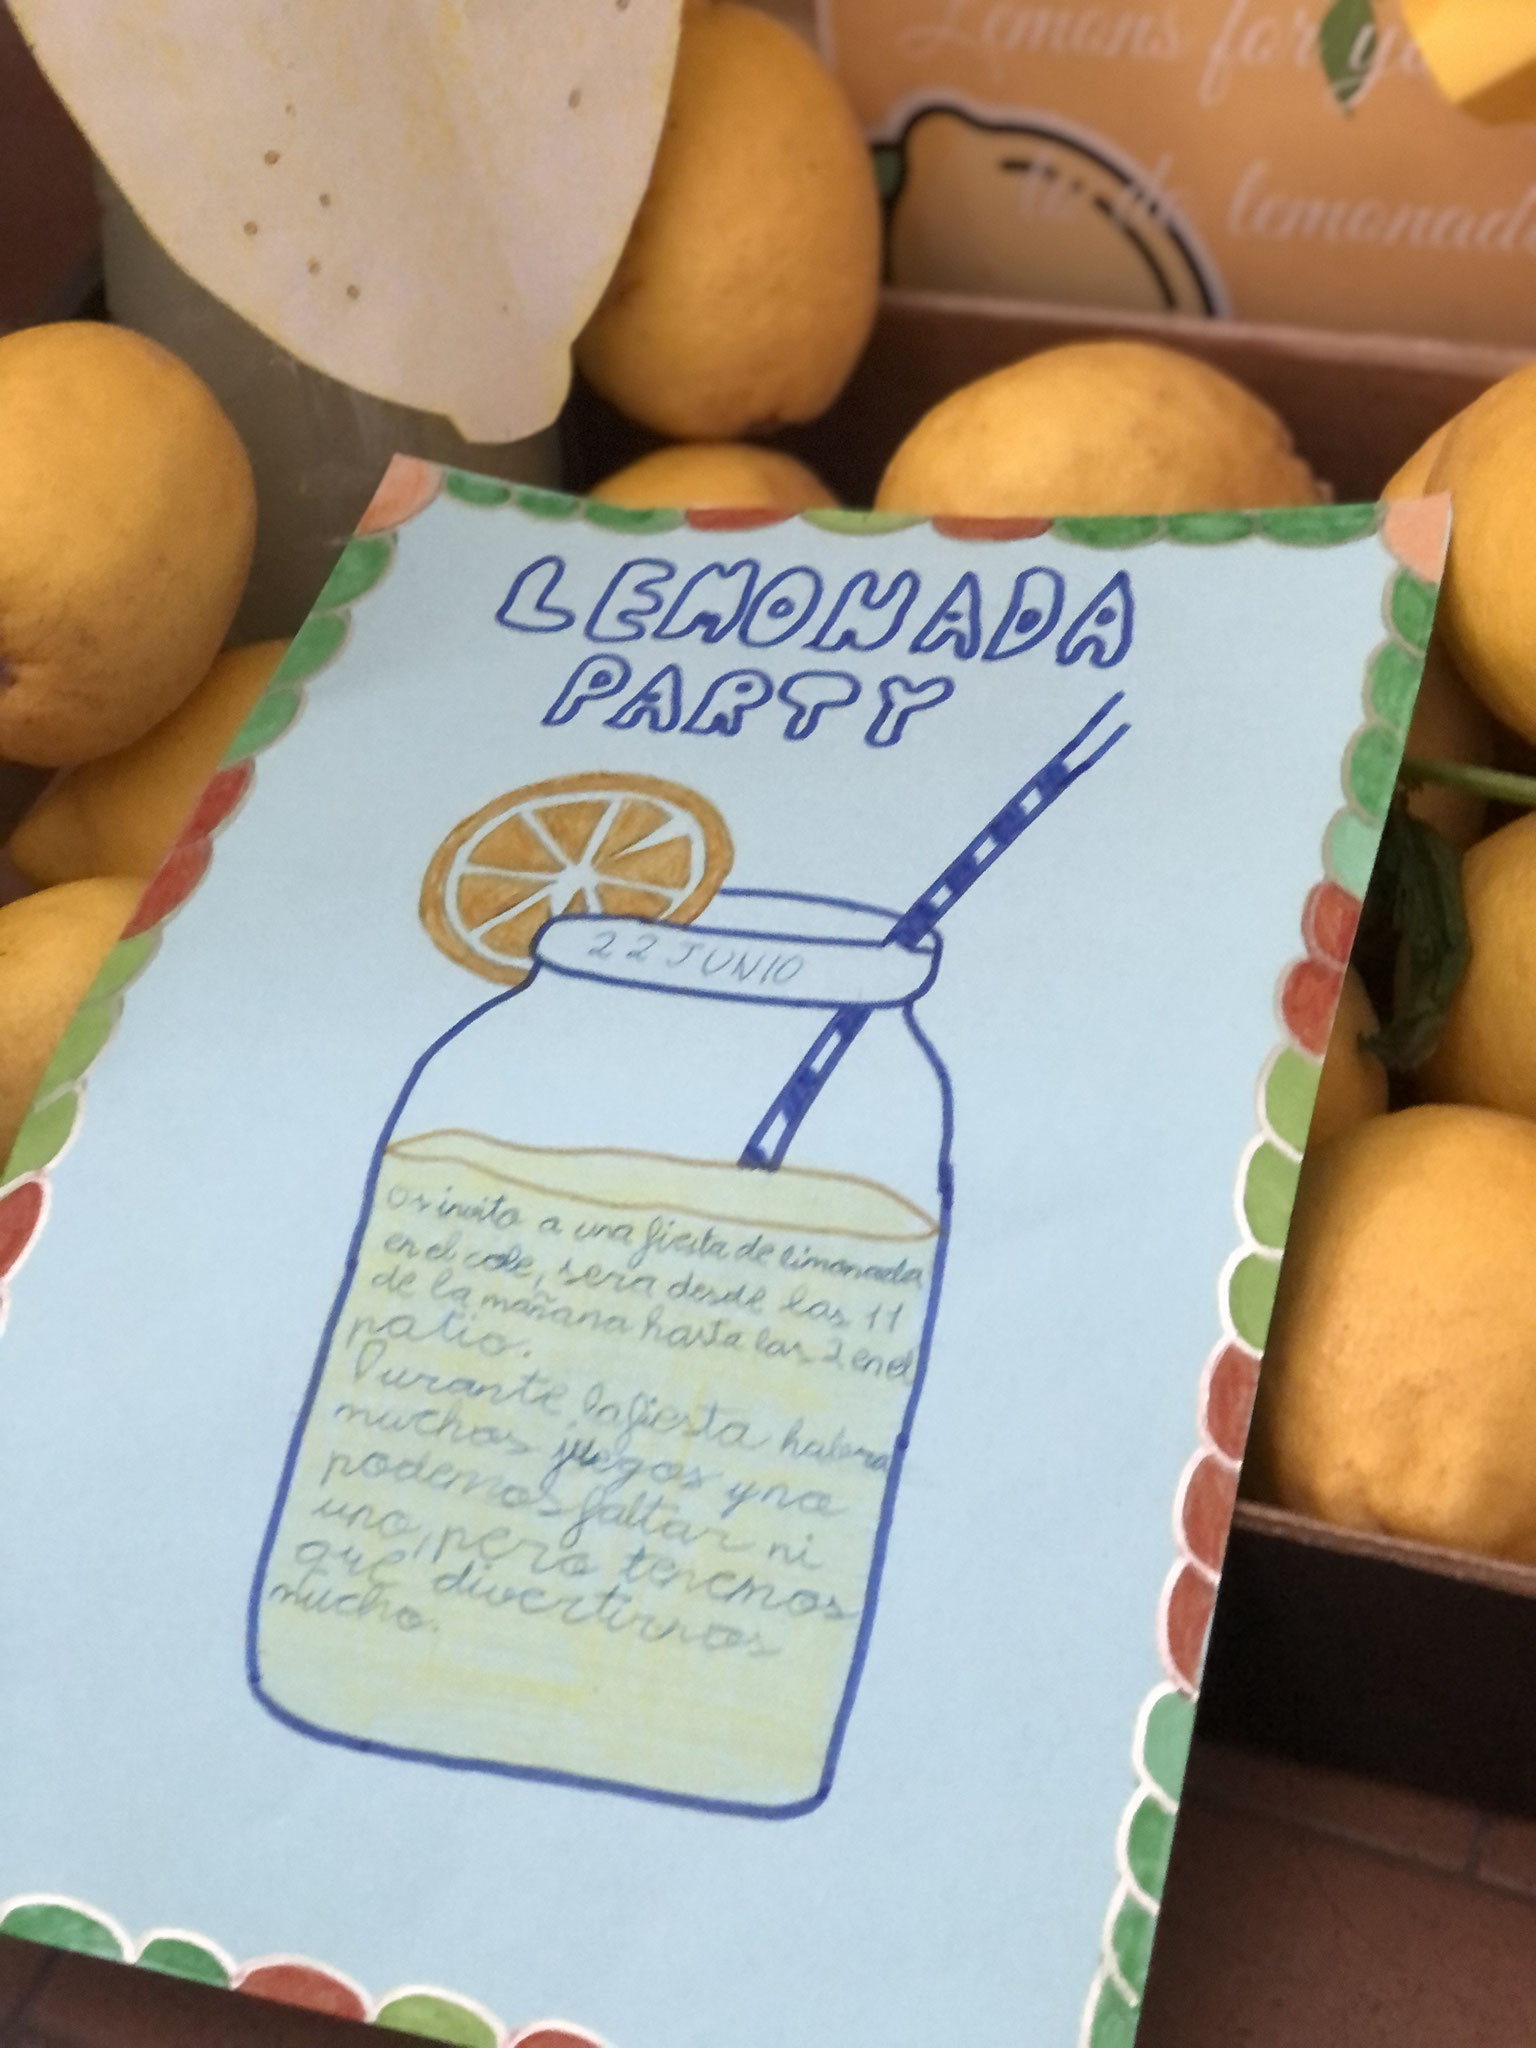 Lemons for
lemonad
LEMONADA
PARTY
22 JUNIO
Os invito a una fiesta de limonada
en el cole, sera desde las 11
de la mañana hasta las 2 en el
patio.
Durante la fiesta habera
muchos juegos y no
podemos faltar ni
uno, pero tenemos
que divertirnos
mucho.